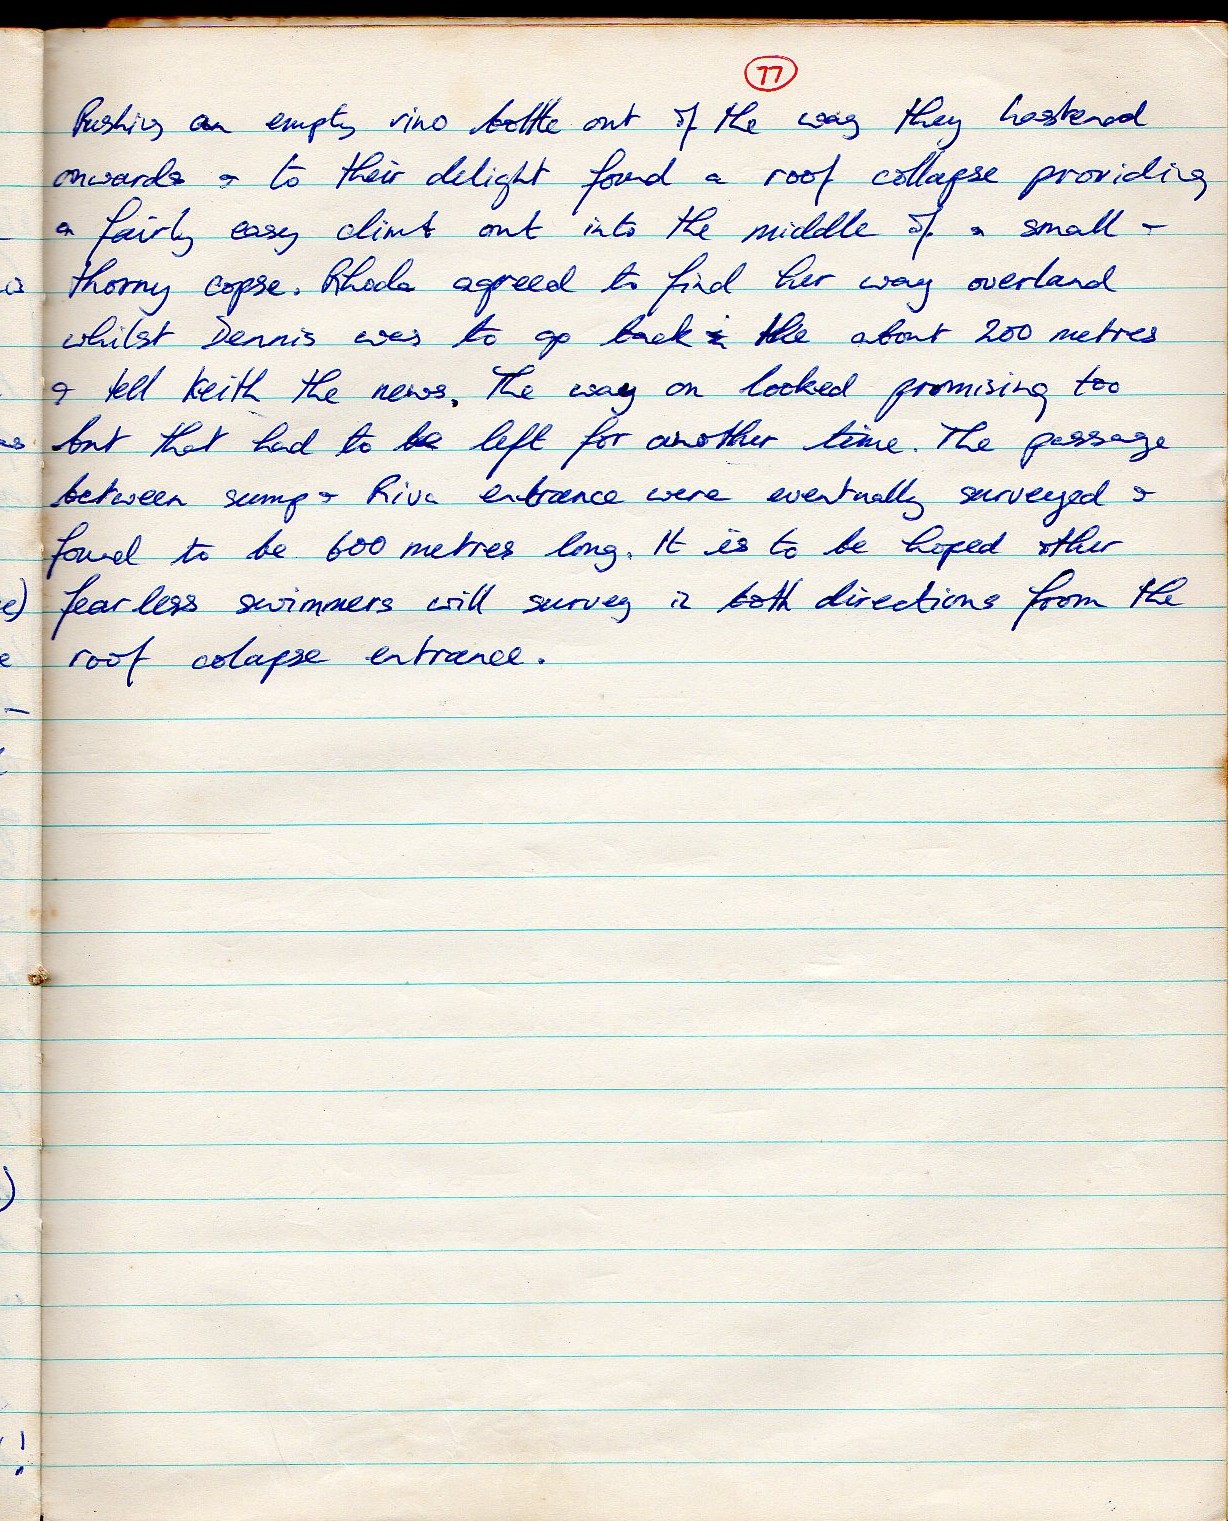 77
Pushing an empty vino bottle out of the way they hastened
onwards & to their delight found a roof collapse providing
a fairly easy climb out into the middle of a small &
thorny copse. Rhoda agreed to find her way overland
whilst Dennis was to go back the about 200 metres
& tell Keith the news. The way on looked promising too
but that had to be left for another time. The passage
between sump & Riva entrance were eventually surveyed &
found to be 600 metres long. It is to be hoped other
fearless swimmers will survey in both directions from the
roof colapse entrance.